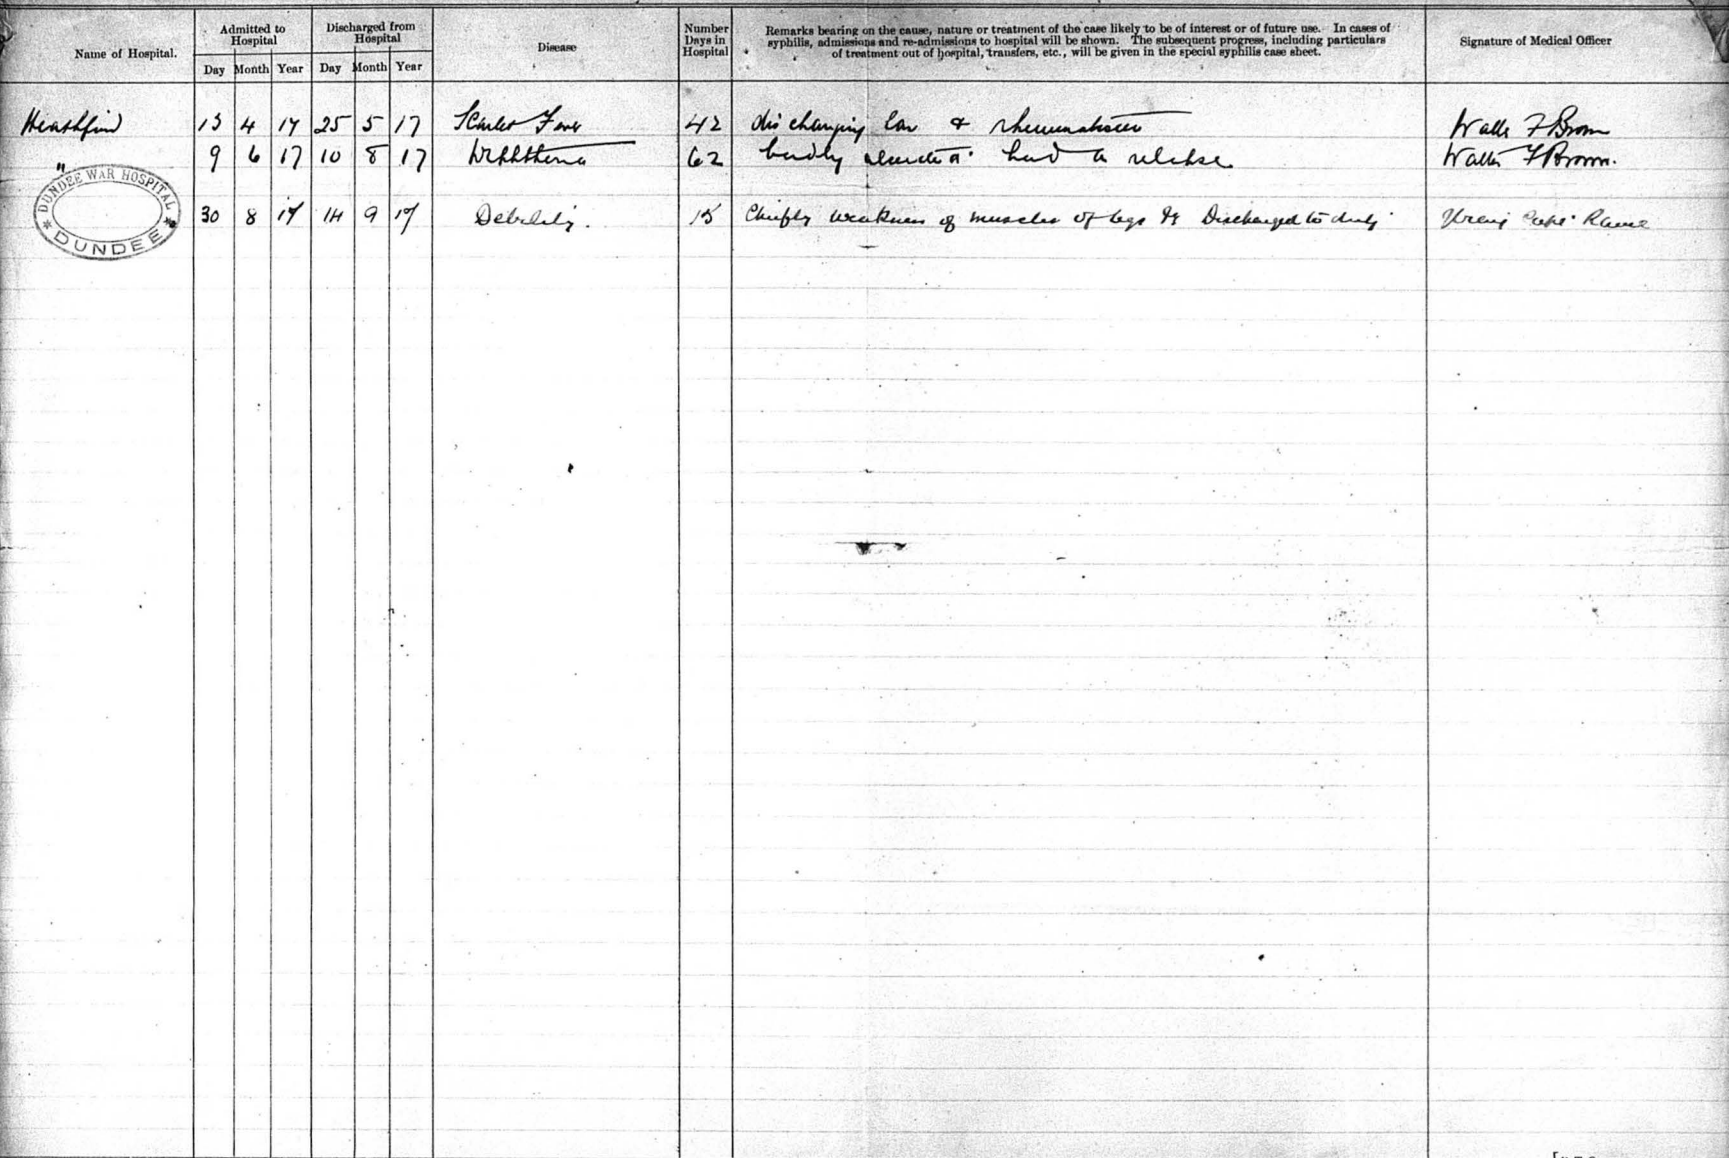 Name of Hospital.
Admitted to Hospital
Day Month Year
Discharged from Hospital
Day Month Year
Disease
Number Days in Hospital
Remarks bearing on the cause, nature or treatment of the case likely to be of interest or of future use. In cases of
syphilis, admissions and re-admissions to hospital will be shown. The subsequent progress, including particulars
of treatment out of hospital, transfers, etc., will be given in the special syphilis case sheet.
Signature of Medical Officer
13 4 17 25 5 17 Scarlet Fever 42 discharging Ear & rheumatism Walter F Brown
" 9 6 17 10 8 17 Diphtheria 62 badly had a relapse Walter F Brown.
DUNDEE WAR HOSPITAL
DUNDEE
30 8 17 14 9 17 Debility. 15 Chiefly weakness of muscles of legs Discharged to duty Capt